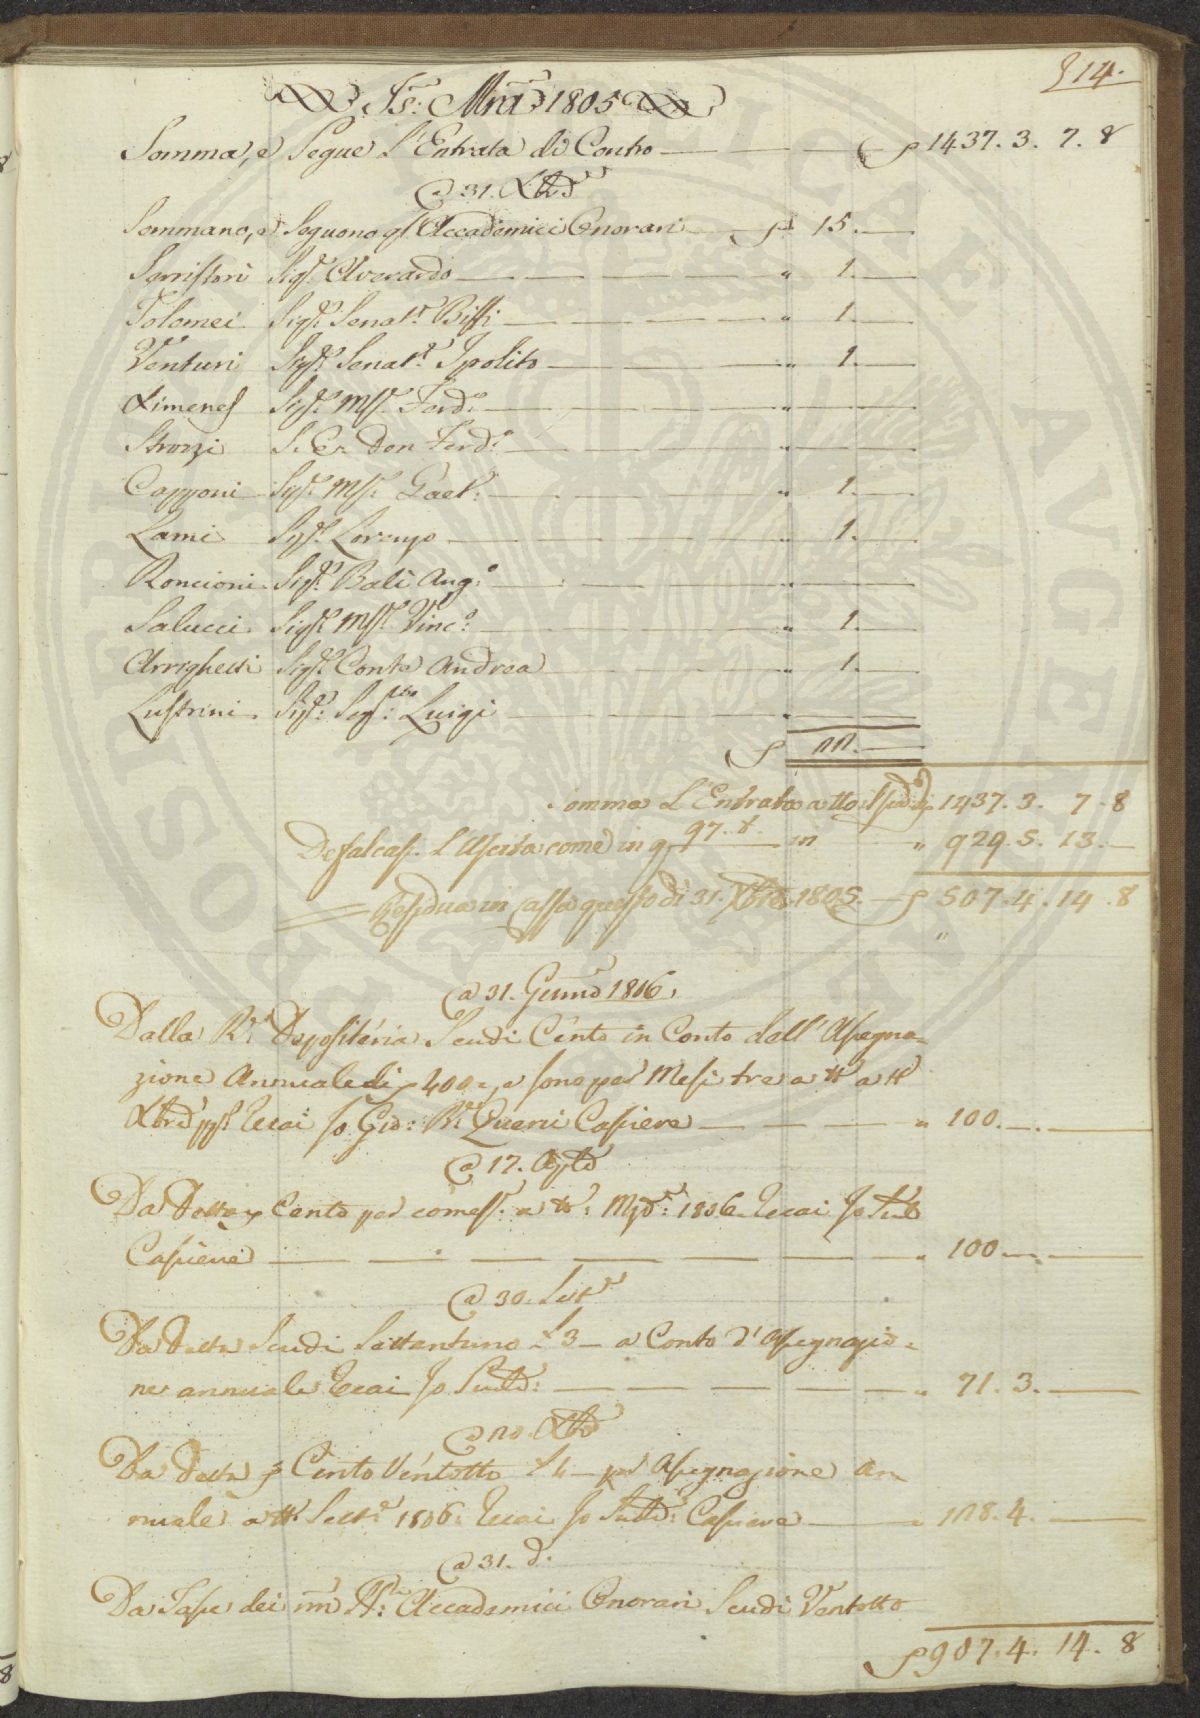 914.
Js: Mra 1805
Somma, e Segue L'Entrata di Contro 1437. 3. 7. 8
a 31. Xbre
Sommano, e Seguono gl'Accademici Onorari 15.
Sig.r Averardo " 1.
Tolomei Sig.r Senat.r Biffi " 1.
Venturi Sig.r Senat.r Ipolito " 1.
Ximenes Sig.r Mse. Ferd.o "
Strozzi S. E. Don Ferd.o "
Capponi Sig.r Mse. Gaet.o " 1.
Lami Sig.r Lorenzo " 1.
Roncioni Sig.r Balì Aug.o "
Salucci Sig.r Mse. Vinc.o " 1.
Arrighetti Sig.r Conte Andrea " 1.
Lustrini Sig.r Seg.rio Luigi "
22.
Somma L'Entrata a tto 1437. 3. 7. 8
Defalcasi L'Uscita come in 97. t. in " 929. 5. 13.
Residua in Cassa questo dì 31. Xbre 1805. 507. 4. 14. 8
"
a 31. Genn.o 1806.
Dalla R.a Depositeria Scudi Cento in Conto dell'Assegna=
zione Annuale di 400 e sono per Mesi tre a tt.o
Xbre Recai Io Gio: Querci Cassiere " 100.
a 17. Agto
Da Detta Cento per 1806 Recai Io Sud.
Cassiere " 100
a 30. Sett.e
Da Detta Scudi Settantuno L 3 a Conto d'Assegnazio=
ne annuale Recai Io Sudd: " 71. 3.
a 20. Xbre
Da Detta Cento Ventotto L 4 per Assegnazione an
nuale a tt.o Sett.e 1806. Recai Io Sudd: Cassiere 128. 4.
a 31. d.o
Da Tasse dei Accademici Onorari Scudi Ventotto
907. 4. 14. 8